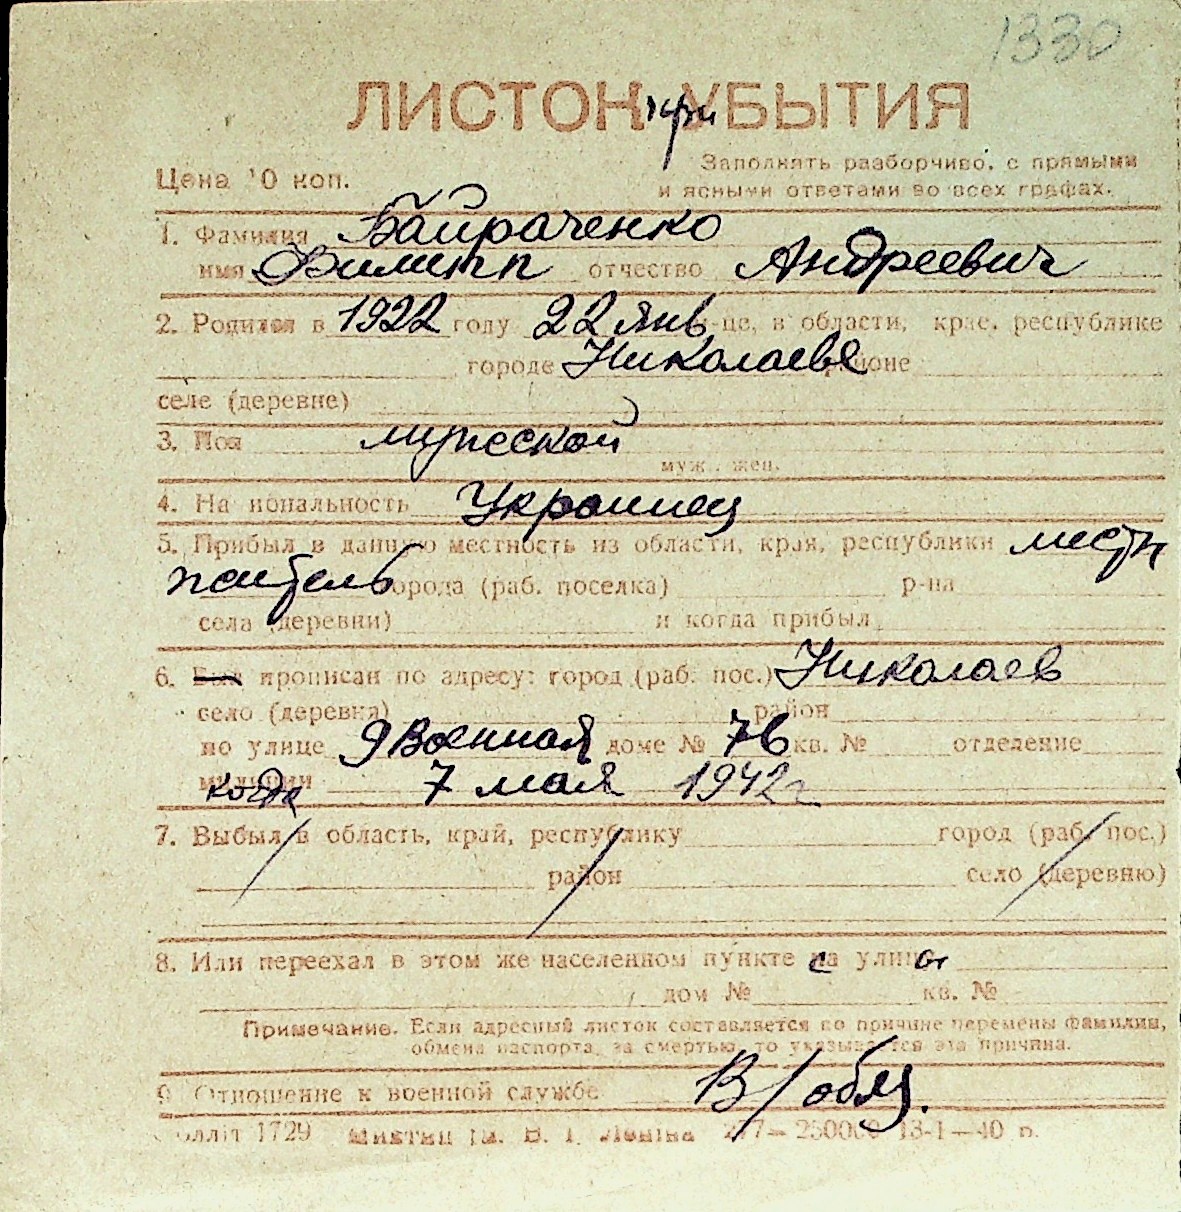 1330
ЛИСТОК при УБЫТИЯ
Заполнять разборчиво, с прямыми
Цена 10 коп. и ясными ответами во всех графах.
1. Фамилия Байраченко
имя Филипп отчество Андреевич
2. Родился в 1922 году 22 янв. м-це, в области, крае, республике
городе Николаеве районе
селе (деревне)
3. Пол мужеской
муж., жен.
4. Национальность Украинец
5. Прибыл в данную местность из области, края, республики местн
житель города (раб. поселка) р-на
села (деревни) и когда прибыл
6. Был прописан по адресу: город (раб. пос.) Николаев
село (деревня) район
по улице 9 Военная доме № 76 кв. № отделение
милиции когда 7 мая 1942 г
7. Выбыл в область, край, республику город (раб. пос.)
район село (деревню)
8. Или переехал в этом же населенном пункте с улицы
дом № кв. №
Примечание. Если адресный листок составляется по причине перемены фамилии,
обмена паспорта, за смертью, то указывается эта причина.
9. Отношение к военной службе В/обяз.
Оллiт 1729 В. I. Ленiна 277—250000 13-I—40 р.